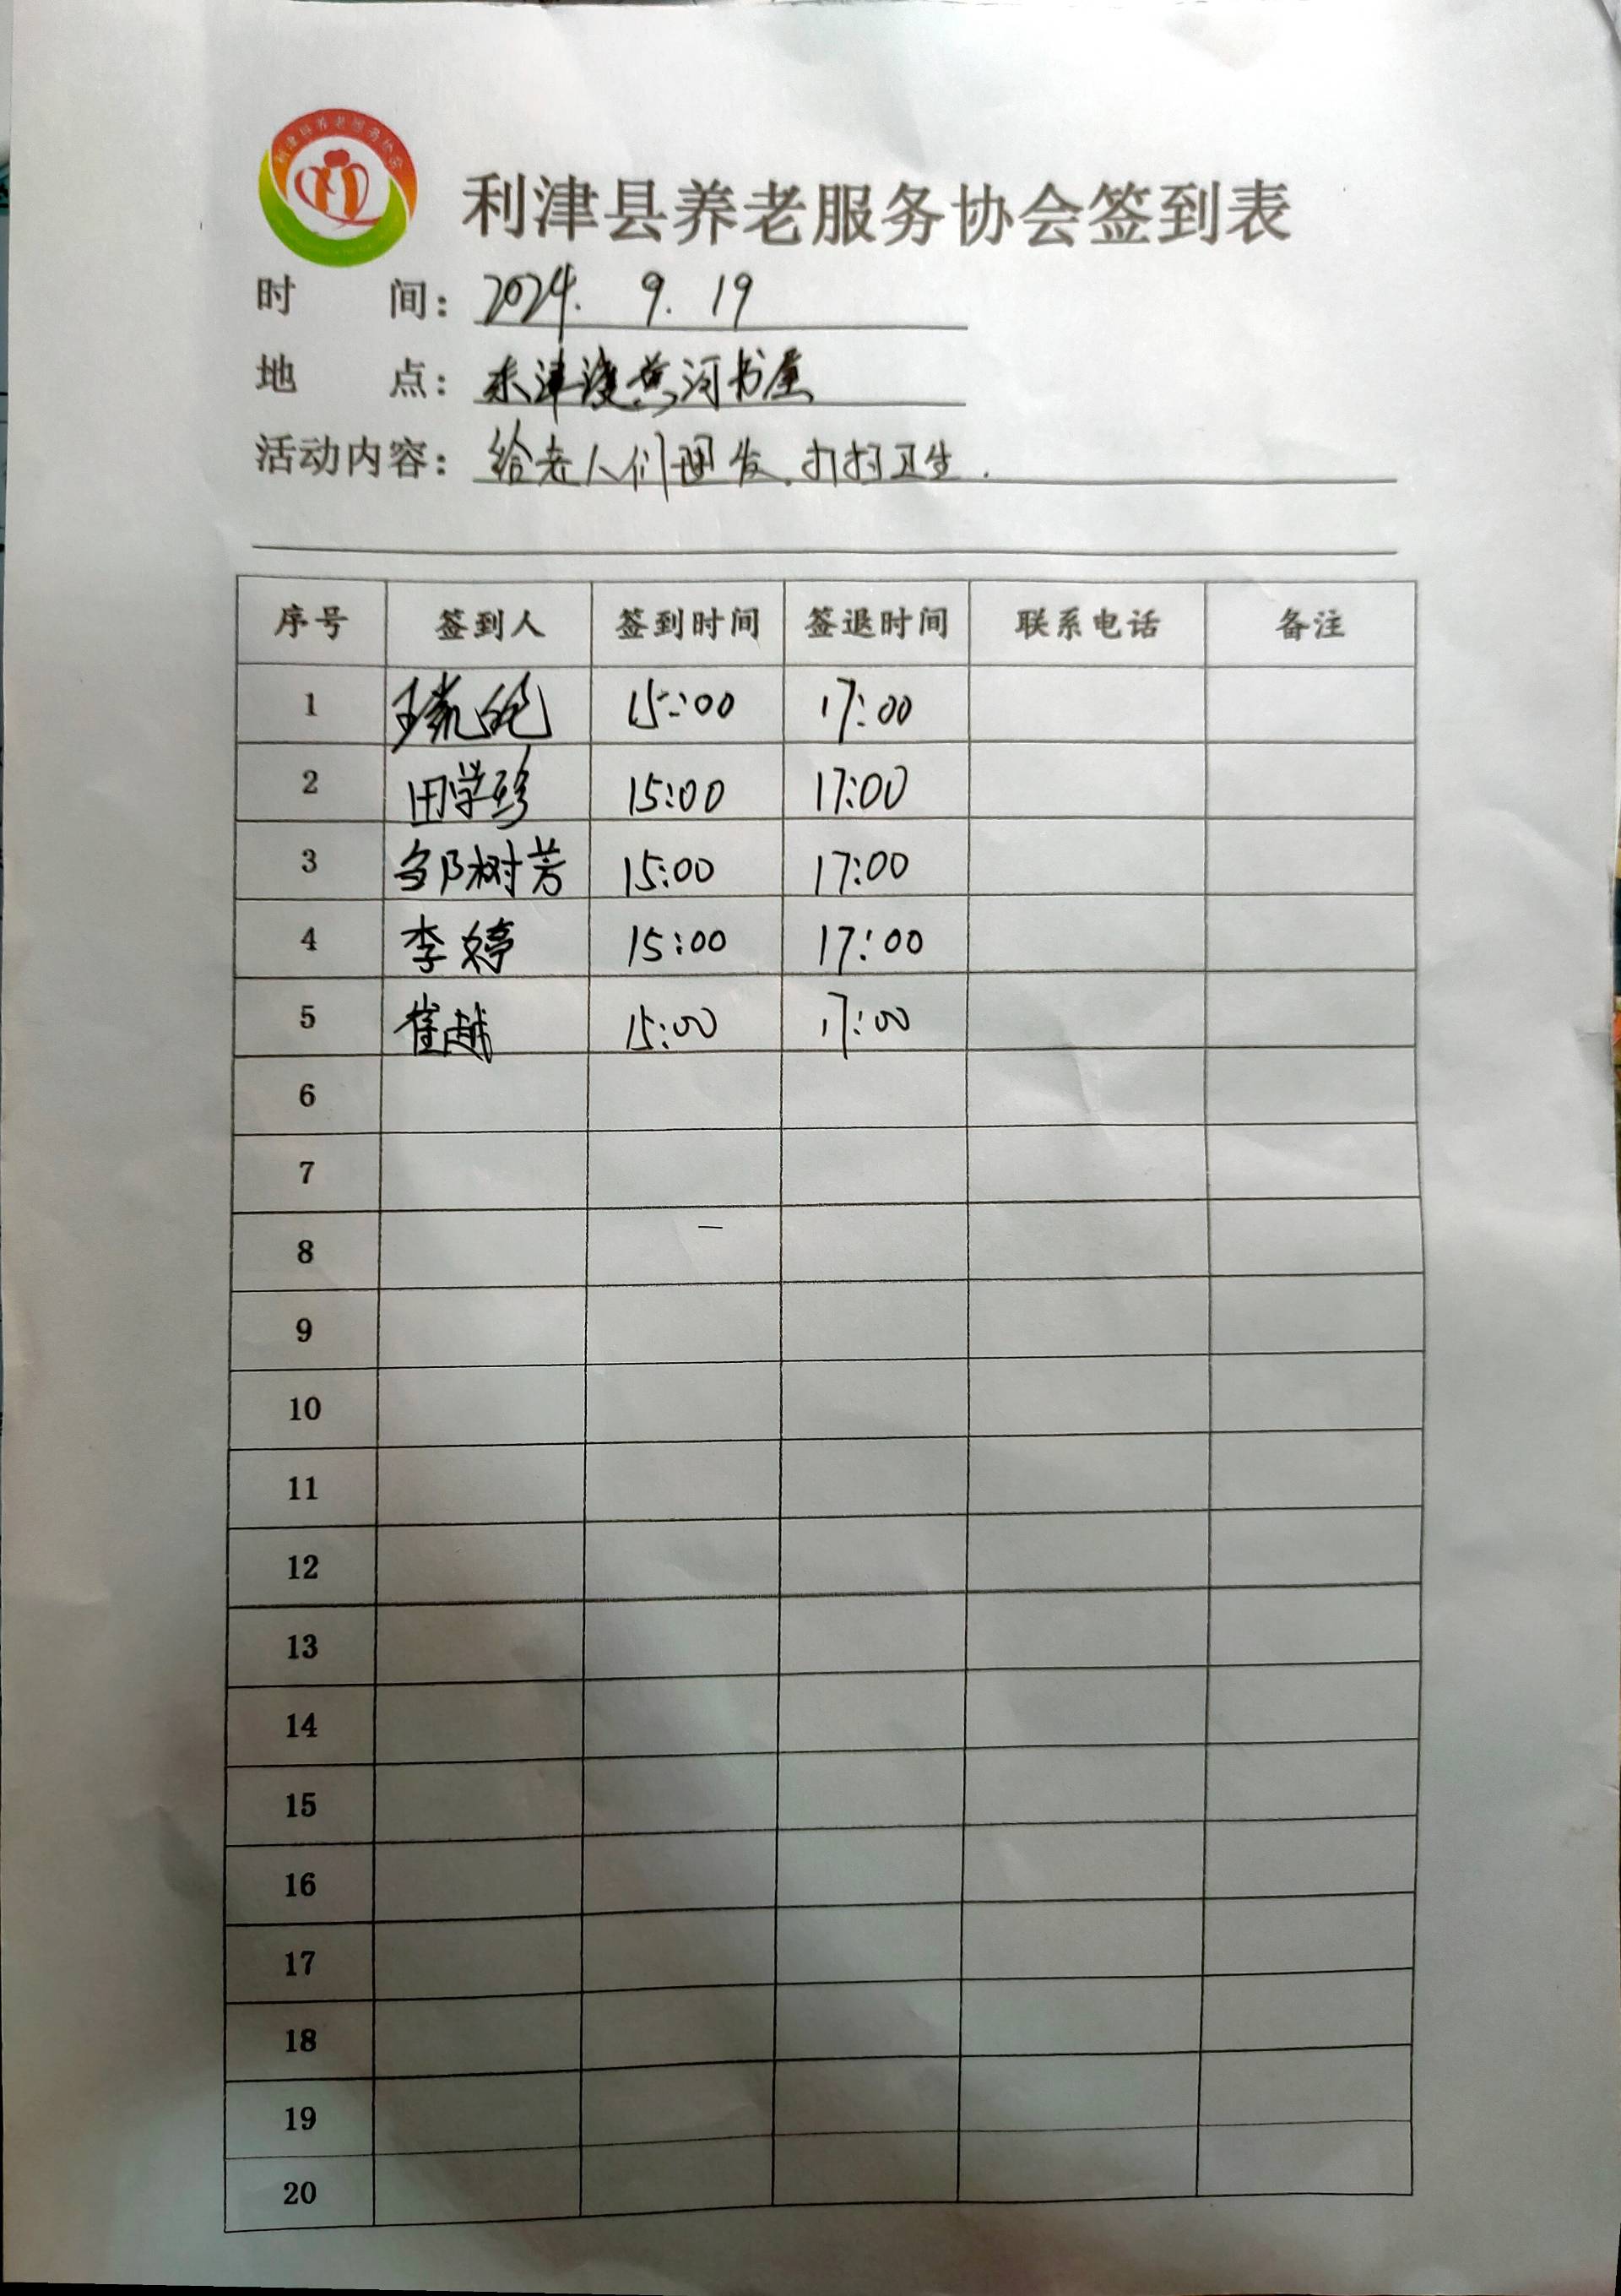 利津县养老服务协会
利津县养老服务协会签到表
时 间：2024. 9. 19
地 点：东津渡黄河书屋
活动内容：给老人们理发、打扫卫生.
序号 签到人 签到时间 签退时间 联系电话 备注
1 15:00 17:00
2 田学珍 15:00 17:00
3 邹树芳 15:00 17:00
4 李婷 15:00 17:00
5 崔越 15:00 17:00
6
7
8
9
10
11
12
13
14
15
16
17
18
19
20